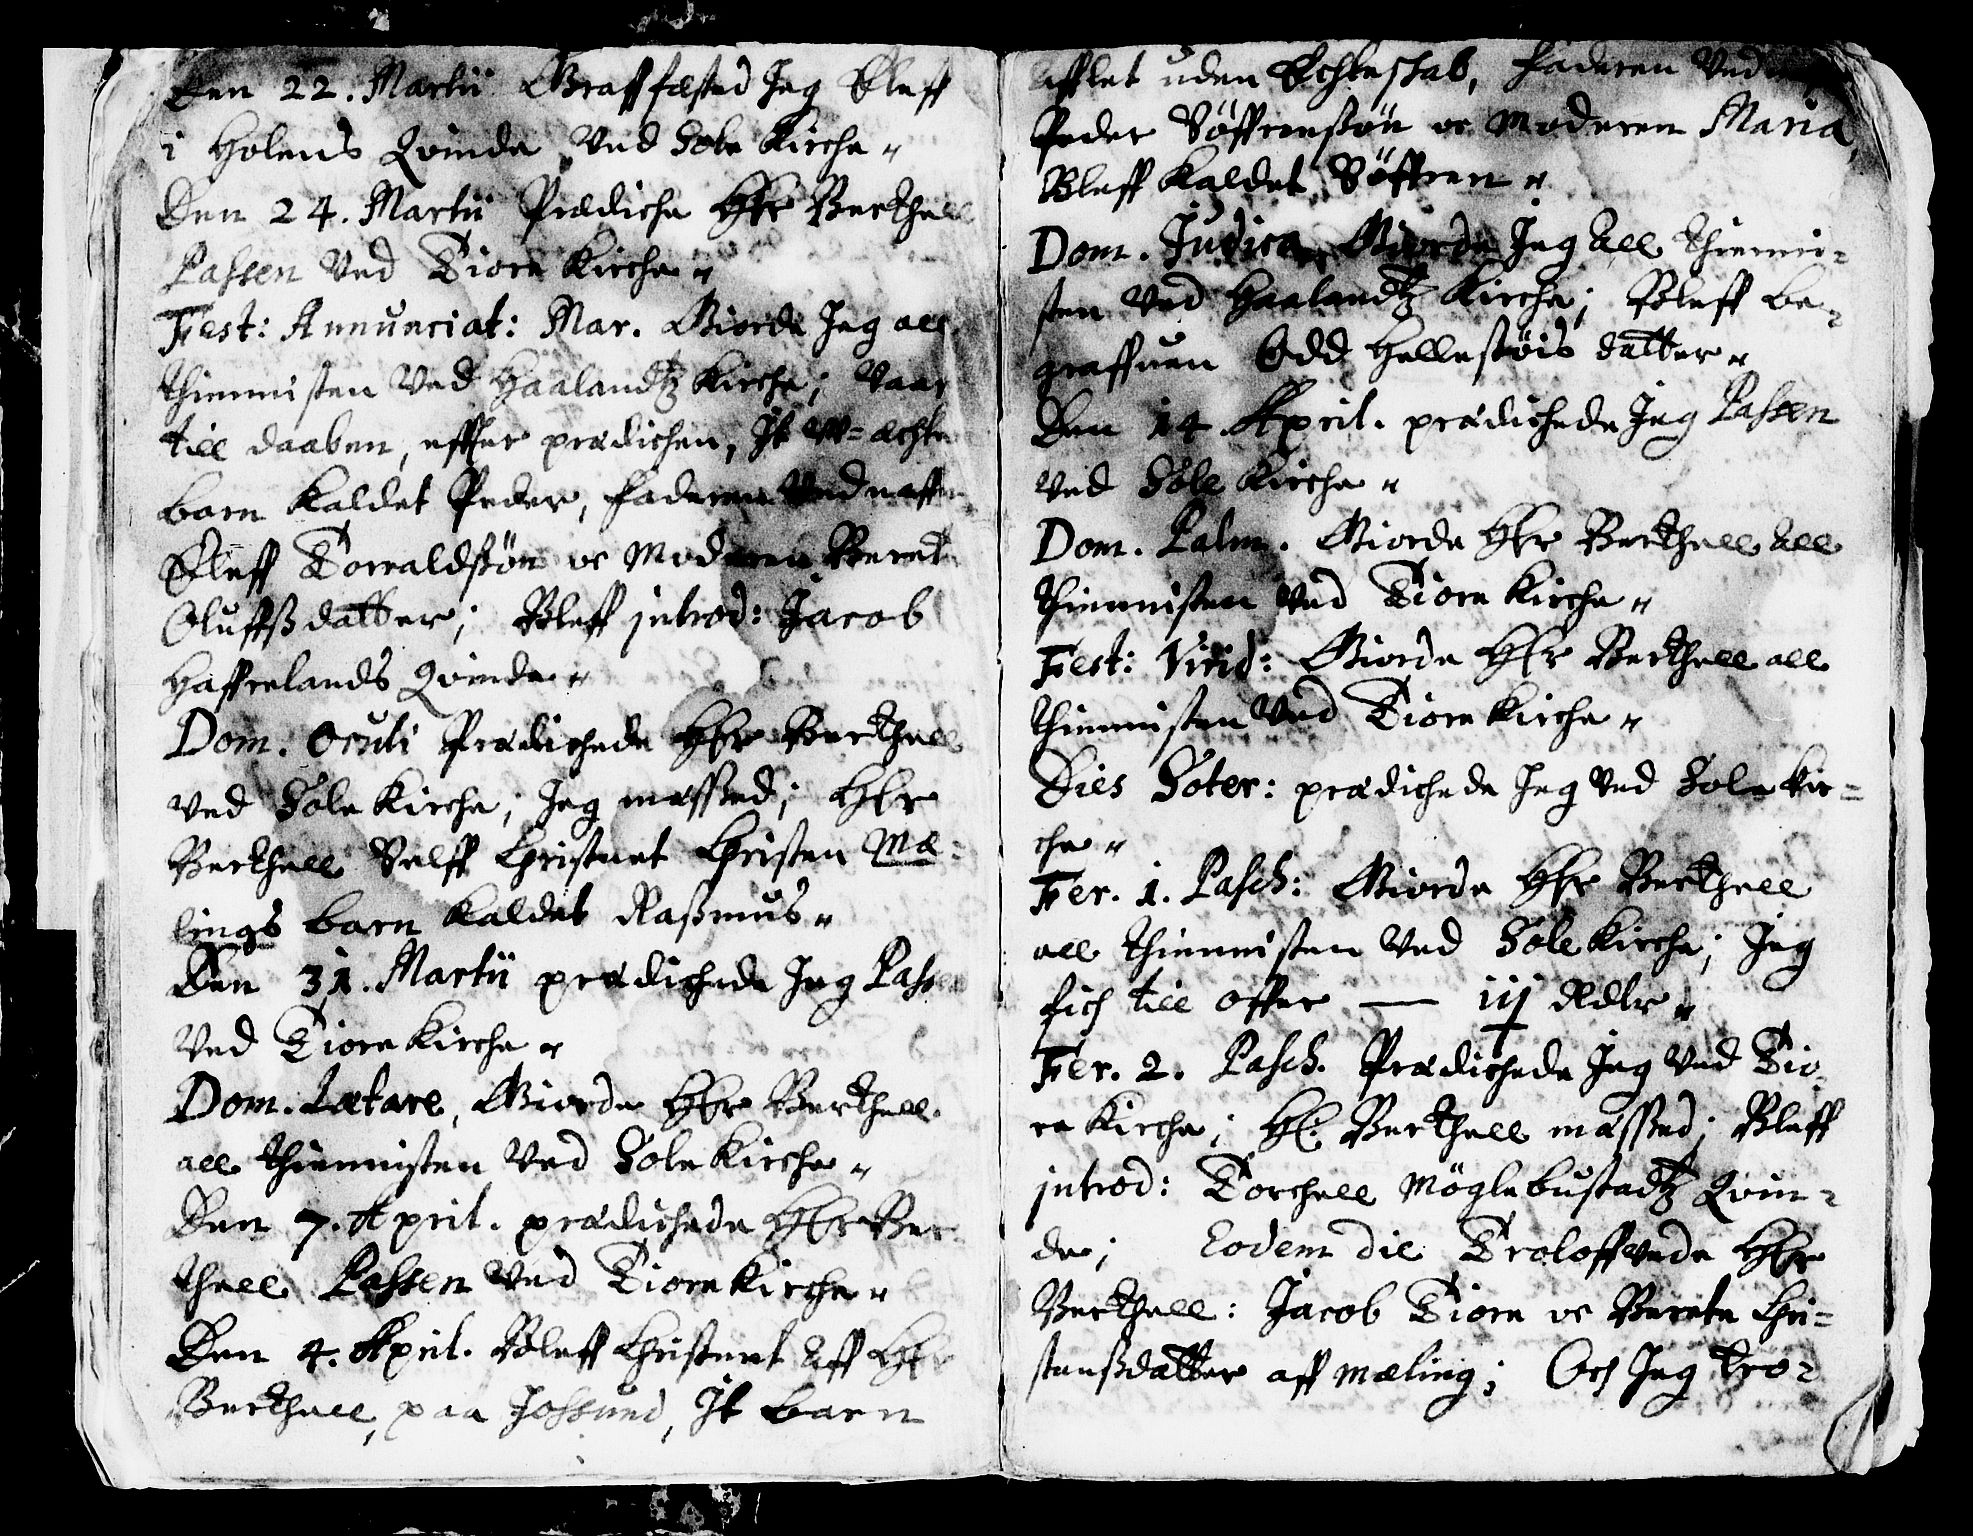 Den 22. Martii Graffæsted Jeg Eleff
i Holens Qvinde Ved Sole Kirche„
Den 24. Martii Prædiche Hr Berthell
Passen Ved Tiora Kirche„
Fest: Annunciat: Mar. Giorde Jeg all
thiennisten Ved Haalandtz Kirche; Vaar
till daaben, effter prædichen, It W=æchte
barn kaldet Peder, Faderen Ved naffn
Eleff Torraldsøn oc Moderen Beret
Oluffsdatter; Bleff introd: Jacob
Haffrelands Qvinde„
Dom. Oculi Prædichede Her Berthell
ved Sole Kirche; Jeg messed; Her
Berthell Self Christnet Christen Mæ=
lings barn kaldet Rasmus„
Den 31. Martii prædichede Jeg Passen
Ved Tiora Kirche„
Dom. Lætare, Giorde Her Berthell
all thiennisten Ved Sole Kirche„
Den 7. April. prædichede Her Ber
thell Passen Ved Tiora Kirche„
Den 4. April. Bleff Christnet Aff Her
Berthell, paa Jossund, It barn
Afflet uden Echteskab, Faderen Ved
Peder Søffrensøn oc Moderen Maria,
Bleff kaldet Søffren„
Dom. Judica, Giorde Jeg All thienni=
sten Ved Haalandtz Kirche; Bleff be=
graffuen Odd Hellestøis datter„
Den 14 April. prædichede Jeg Passen
Ved Sole Kirche„
Dom. Palm. Giorde Her Berthell All
thiennisten Ved Tiora Kirche„
Fest: Virid: Giorde Her Berthell all
thiennisten Ved Tiora Kirche„
Dies Soter: prædichede Jeg Ved Sole Kir=
che„
Fer. 1. Pasch: Giorde Her Berthell
all thiennisten Ved Sole Kirche; Jeg
fich till offer — iij Rdlr„
Fer. 2. Pasch. Prædichede Jeg Ved Tio=
ra Kirche; H. Berthell messed; Bleff
introd: Torchell Møglebustadtz Qvin=
de; Eodem die Troloffvede Her
Berthell: Jacob Tiora oc Berete Chri=
stensdatter aff Mæling; Och Jeg tro=